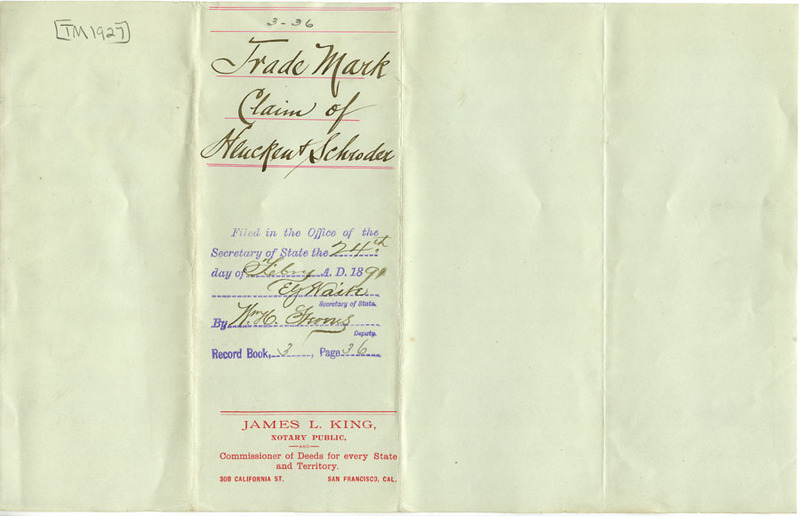 [TM1927]
3-36
Trade Mark
Claim of
Heucken & Schroder
Filed in the Office of the
Secretary of State the 24th
day of Febry A. D. 1890
E G Waite
Secretary of State.
By Wm H.
Deputy.
Record Book, 3, Page 36
JAMES L. KING,
NOTARY PUBLIC,
—AND—
Commissioner of Deeds for every State
and Territory.
308 CALIFORNIA ST. SAN FRANCISCO, CAL.